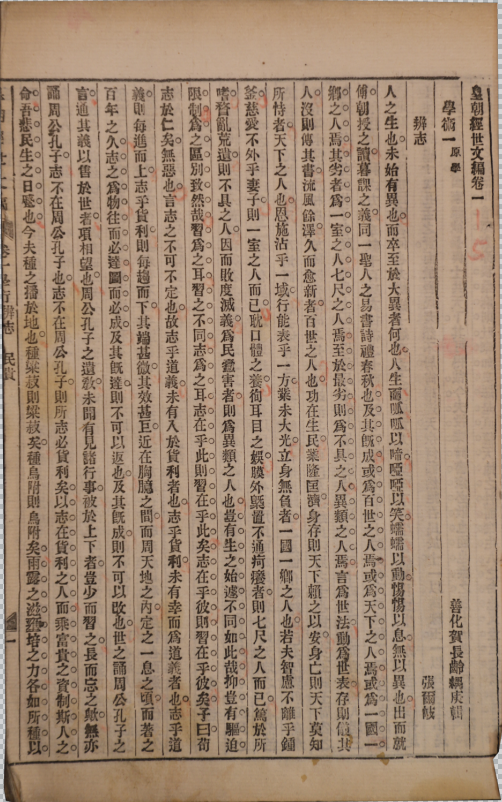 皇朝經世文編卷一
學術一 原學
善化賀長齡耦庚輯
辨志
張爾岐
人之生也未始有異也而卒至於大異者何也人生而呱呱以啼啞啞以笑蠕蠕以動惕惕以息無以異也出而就
傅朝授之讀暮課之義同一聖人之易書詩禮春秋也及其既成或爲百世之人焉或爲天下之人焉或爲一國一
鄉之人焉其劣者爲一室之人七尺之人焉至於最劣則爲不具之人異類之人焉言爲世法動爲世表存則儀其
人沒則傳其書流風餘澤久而愈新者百世之人也功在生民業隆匡濟身存則天下賴之以安身亡則天下莫知
所恃者天下之人也恩施沾乎一域行能表乎一方業未大光立身無負者一國一鄉之人也若夫智慮不離乎鍾
釜慈愛不外乎妻子則一室之人而已耽口體之養徇耳目之娛膜外槪置不通疴癢者則七尺之人而已篤於所
嗜瞀亂荒遺則不具之人因而敗度滅義爲民蠹害者則爲異類之人也豈有生之始遽不同如此哉抑豈有驅迫
限制爲之區別致然哉習爲之耳習之不同志爲之耳志在乎此則習在乎此矣志在乎彼則習在乎彼矣子曰苟
志於仁矣無惡也言志之不可不定也故志乎道義未有入於貨利者也志乎貨利未有幸而爲道義者也志乎道
義則每進而上志乎貨利則每趨而下其端甚微其效甚巨近在胸臆之間而周天地之內定之一息之頃而著之
百年之久志之爲物往而必達圖而必成及其既達則不可以返也及其既成則不可以改也世之誦周公孔子之
言通其義以售於世者項相望也周公孔子之遺教未聞有見諸行事被於上下者豈少而習之長而忘之歟無亦
誦周公孔子志不在周公孔子也志不在周公孔子則所志必貨利矣以志在貨利之人而乘富貴之資制斯人之
命吾悲民生之日蹙也今夫種之播於地也種粱菽則粱菽矣種烏附則烏附矣雨露之滋糞培之力各如所種以